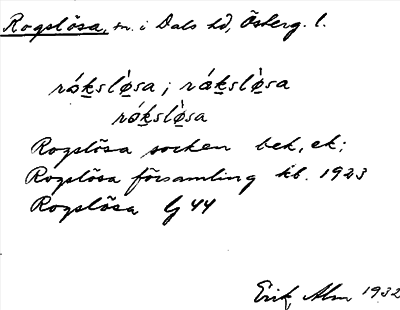 Rogslösa, sn. i Dals hd, Österg. l.
rókslø̀sa; rákslø̀sa
rókslø̀sa
Rogslösa socken bek, ek;
Rogslösa församling kb. 1923
Rogslösa Gj 44
Erik Alm 1932